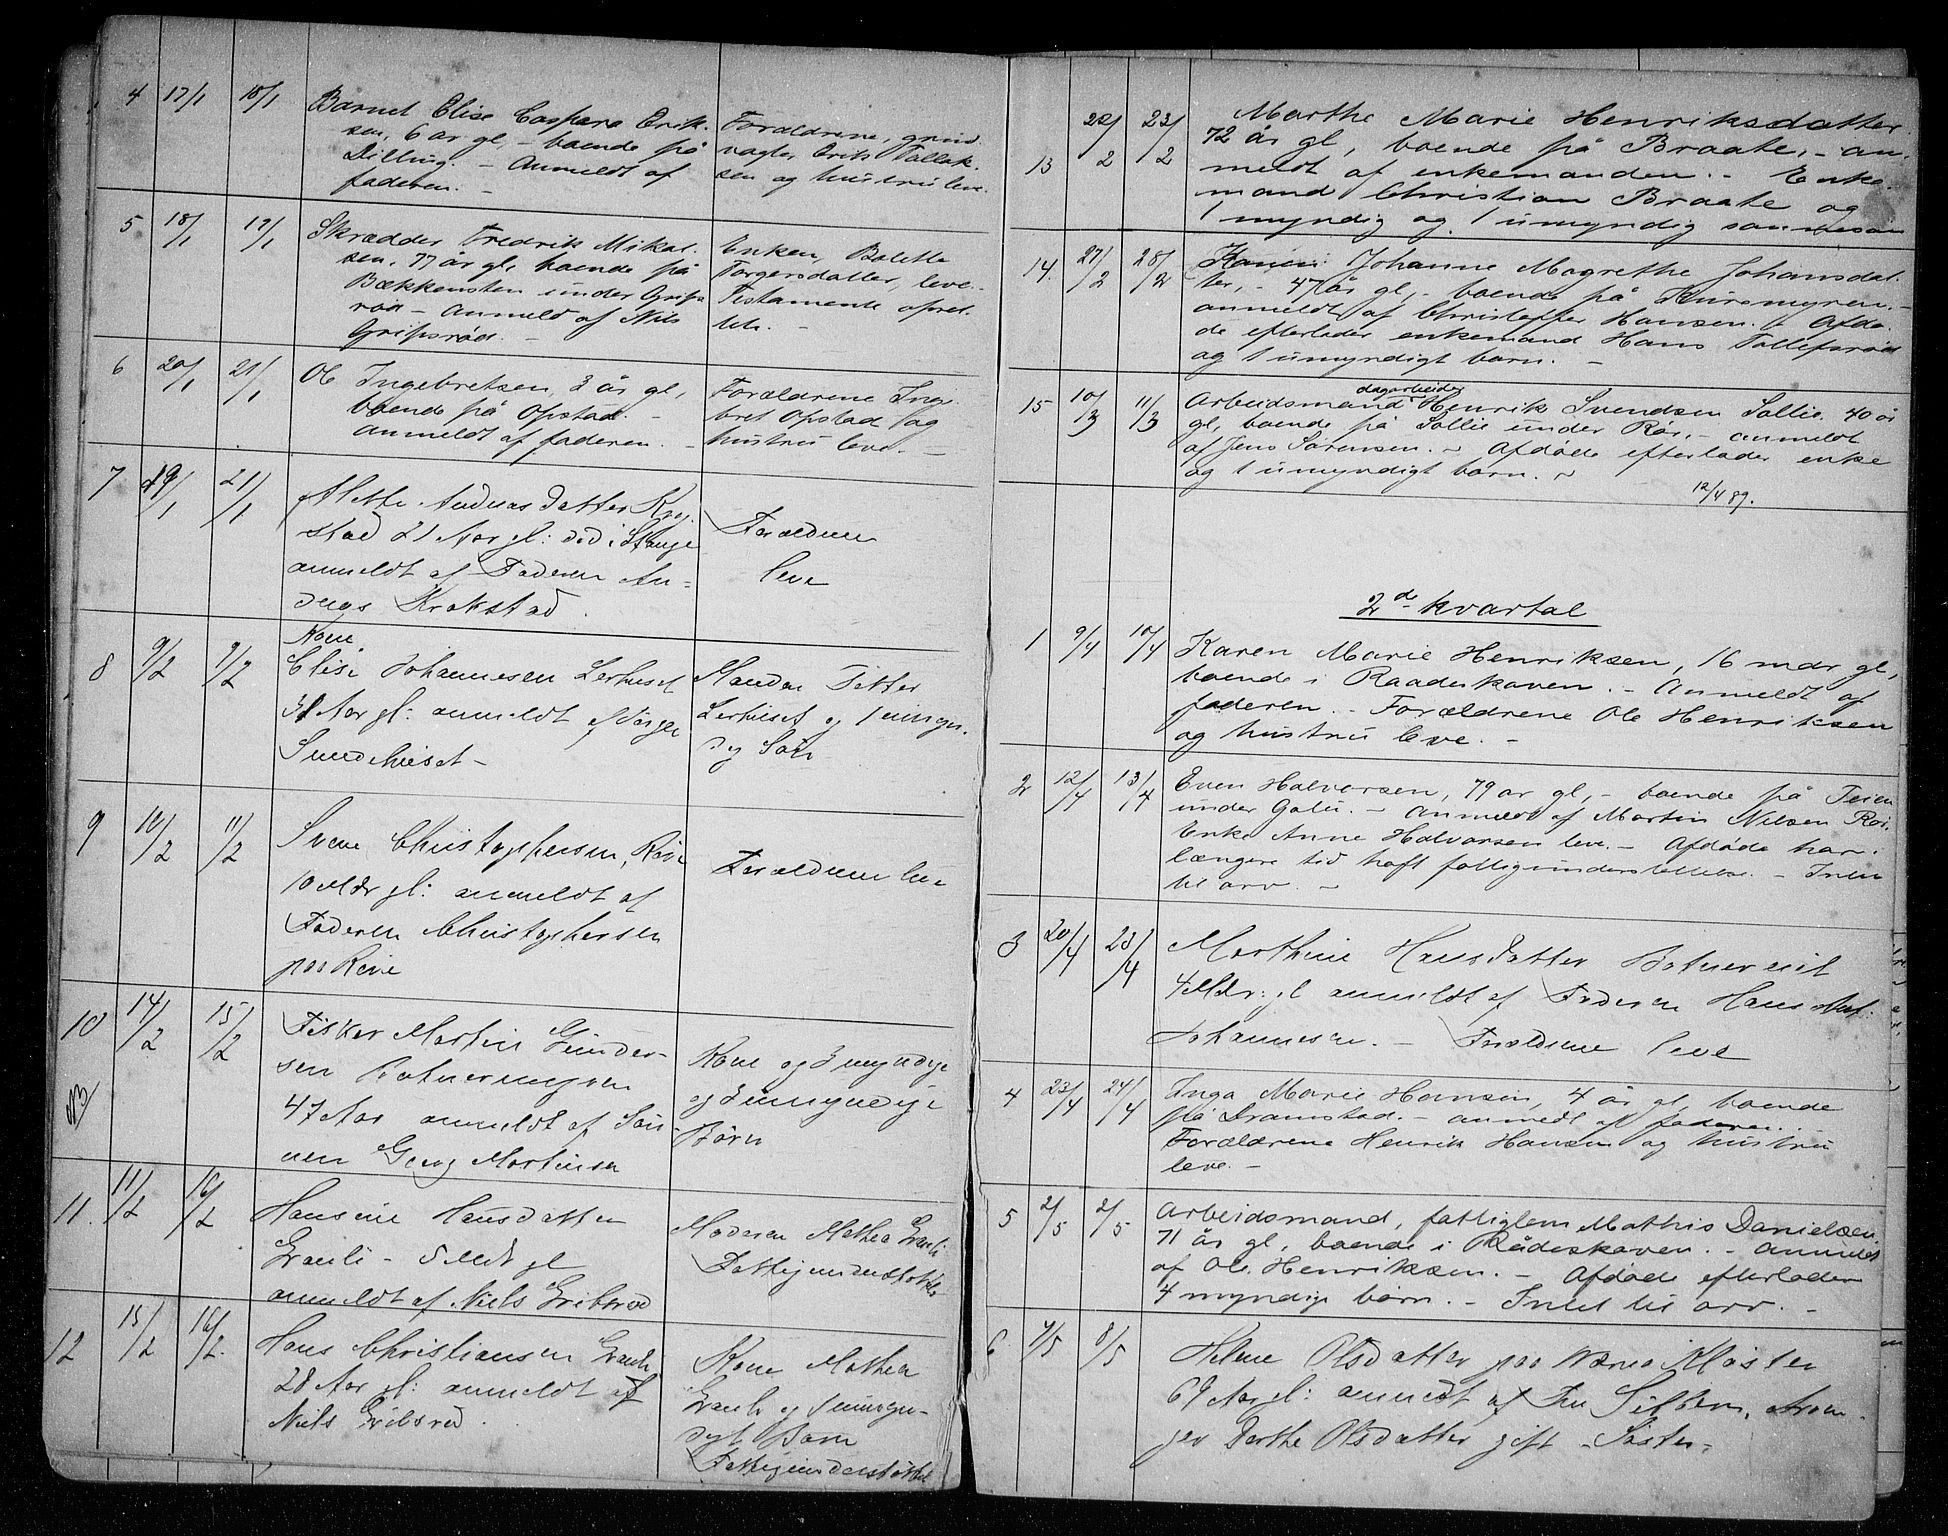 4 17/1 18/1 Barnet Elise Caspara Erik-
sen, 6 år gl, - boende på
Dilling. - Anmeldt af
faderen. -
Forældrene, grind
vagter Erik Tollef-
sen og hustru leve.
5 18/1 19/1 Skrædder Fredrik Mikal-
sen, 77 år gl, boende på
Bækkensten under Grips
rød - Anmeld af Nils
Gripsrød. -
Enken, Bolette
Torgersdatter, leve.
Testamente opret-
tet. -
6 20/1 21/1 Ole Ingebretsen, 3 år gl,
boende på Opstad. -
anmeldt af faderen. -
Forældrene Inge
bret Opstad og
hustru leve. -
7 19/1 21/1 Alette Andreas datter Krog-
stad 21 Aar gl: død i Stange
anmeldt af Faderen An-
dreas Krokstad.
Forældrene
leve
8 9/2 9/2 Kone
Elise Johannesen Lerhuset
31 Aar gl: anmeldt af
Sundehuset -
Manden Petter
Lerhuset og 1 umyn-
dig Søn
9 10/2 11/2 Svene Christophersen, Røie
10 Mdr gl: anmeldt af
Faderen Christophersen
paa Røie
Forældrene leve
10 14/2 15/2 Fisker Martin Gunder-
sen Botnermyren
47 Aar anmeldt af Søn-
nen Georg Martinsen
Kone og 3 myndige
og 3 umyndige
Børn
NB
11. 11/2 16/2 Hansine Hansdatter
Grønli - 5 Mdr gl
anmeldt af Niels Gribsrød
Moderen Mathea Grønli
Fattigunderstøttet
12 15/2 16/2. Hans Christiansen Grønli
28 Aar gl: anmeldt af
Niels Gribsrød.
Kone Mathea
Grønli og 1 umyn-
digt Barn
Fattigunderstøttet
13 22/2 23/2 Marthe Marie Henriksdatter
72 år gl, boende på Braate, - an-
meldt af enkemanden. - Enke-
mand Christian Braate og
1 myndig og 1 umyndig
14. 27/2 28/2 Konen: Johanne Magrethe Johansdat-
ter, - 47 år gl, - boende på Kursmyren. -
anmeldt af Christoffer Hansen. - Afdø-
de efterlader enkemand Hans Tollefsrød
og 1 umyndigt barn. -
dagarbeider
15 10/3 11/3 Arbeidsmand Henrik Svendsen Sollie, 40 år
gl, boende på Sollie under Rør, - anmeldt
af Jens Sørensen. - Afdøde efterlader enke
og 1 umyndigt barn. -
12/4 89.
2d kvartal
1 9/4 10/4 Karen Marie Henriksen, 16 mdr gl,
boende i Raadeskaven. - Anmeldt af
faderen. - Forældrene Ole Henriksen
og hustru leve. -
2 12/4 13/4 Even Halvorsen, 79 år gl, - boende på Teien
under Galu. - Anmeldt af Martin Nilsen Roi.
Enke Anne Halvorsen leve. - Afdøde har
længere tid haft fattigunderstøttelse. - Intet
til arv. -
3 20/4 23/4 Marthine Hansdatter
4 Mdr. gl anmeldt af Faderen Hans
Johannesen. - Forældrene leve
4 23/4 24/4 Inga Marie Hansen, 4 år gl, boende
på Dramstad. - anmeldt af faderen. -
Forældrene Henrik Hansen og hustru
leve. -
5 2/5 2/5 Arbeidsmand, fattiglem Mathis Danielsen,
71 år gl, boende i Rådeskaven. - Anmeldt
af Ole Henriksen. - Afdøde efterlader
4 myndige børn. - Intet til arv. -
6 7/5 8/5 Helene Olsdatter paa Værne Kloster
69 Aar gl: anmeldt af Arvin-
ger Dorthe Olsdatter gift - Søster -